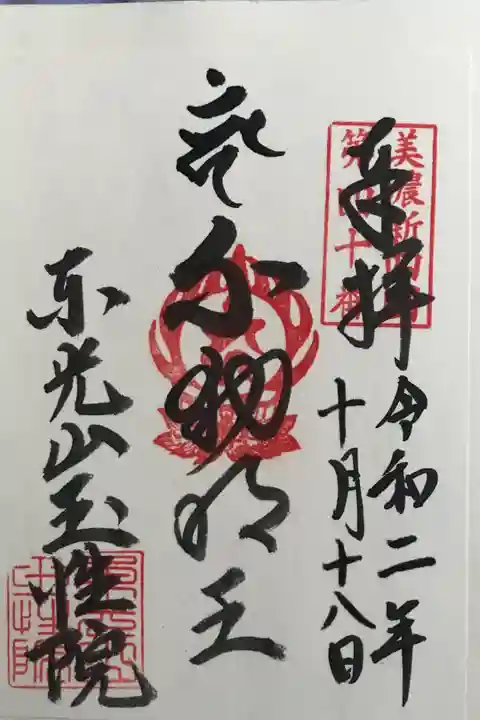 奉拝
美濃新四国
第四十番
令和二年
十月十八日
不動明王
東光山玉性院